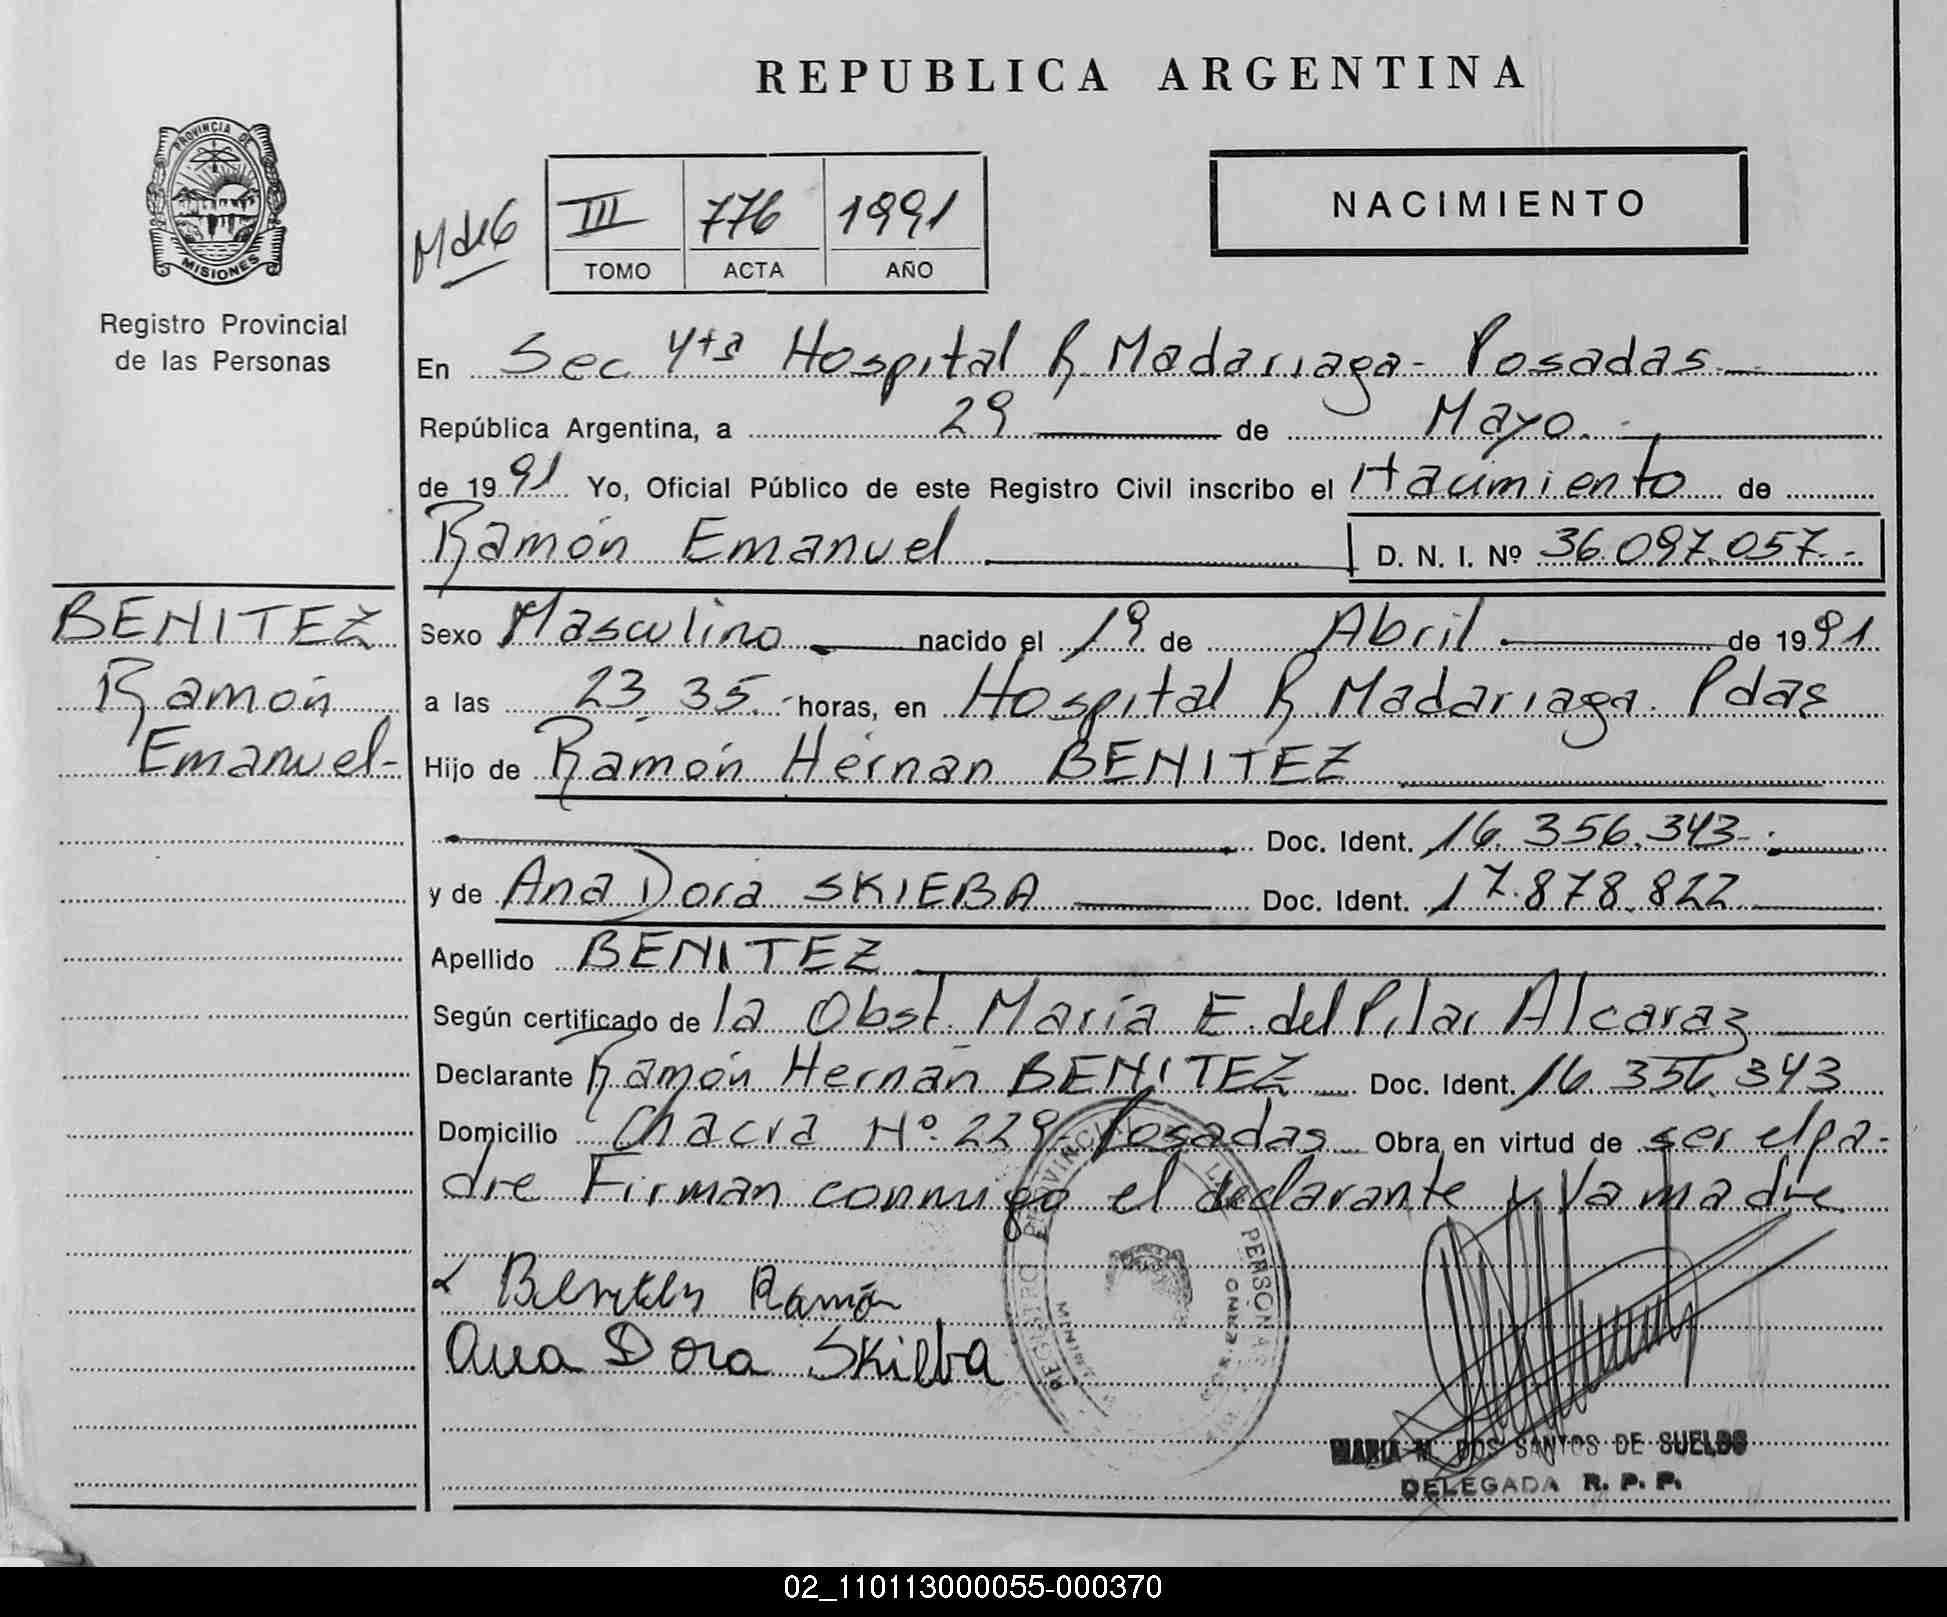 REPUBLICA ARGENTINA
PROVINCIA DE
MISIONES
Registro Provincial
de las Personas
III 776 1991
TOMO ACTA AÑO
NACIMIENTO
En Sec 4ta Hospital R Madariaga - Posadas
República Argentina, a 29 de Mayo
de 1991 Yo, Oficial Público de este Registro Civil inscribo el Nacimiento de
Ramón Emanuel D. N. I. Nº 36.097.057.-
BENITEZ
Ramón
Emanuel-
Sexo Masculino nacido el 19 de Abril de 1991
a las 23.35.- horas, en Hospital R Madariaga. Pdas
Hijo de Ramón Hernan BENITEZ
Doc. Ident. 16.356.343-.
y de Ana Dora SKIEBA Doc. Ident. 17.878.822
Apellido BENITEZ
Según certificado de la Obst. María E. del Pilar Alcaraz
Declarante Ramón Hernan BENITEZ Doc. Ident. 16 356 343
Domicilio Chacra Nº 229- Posadas Obra en virtud de ser el pa-
dre Firman conmigo el declarante y la madre
Ramón
Ana Dora Skieba
REGISTRO PROVINCIAL PERSONAS
MARIA M. DOS SANTOS DE SUELDO
DELEGADA R. P. P.
02_110113000055-000370